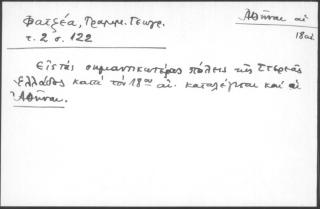 Φατζέα, Γραμμ. Γεωγρ.
τ. 2 σ. 122
Ἀθῆναι αἱ
18 αἰ.
Εἰς τάς σημαντικωτέρας πόλεις τῆς Στερεᾶς
Ἑλλάδος κατά τόν 18ον αἰ. καταλέγεται καί αἱ
Ἀθῆναι.